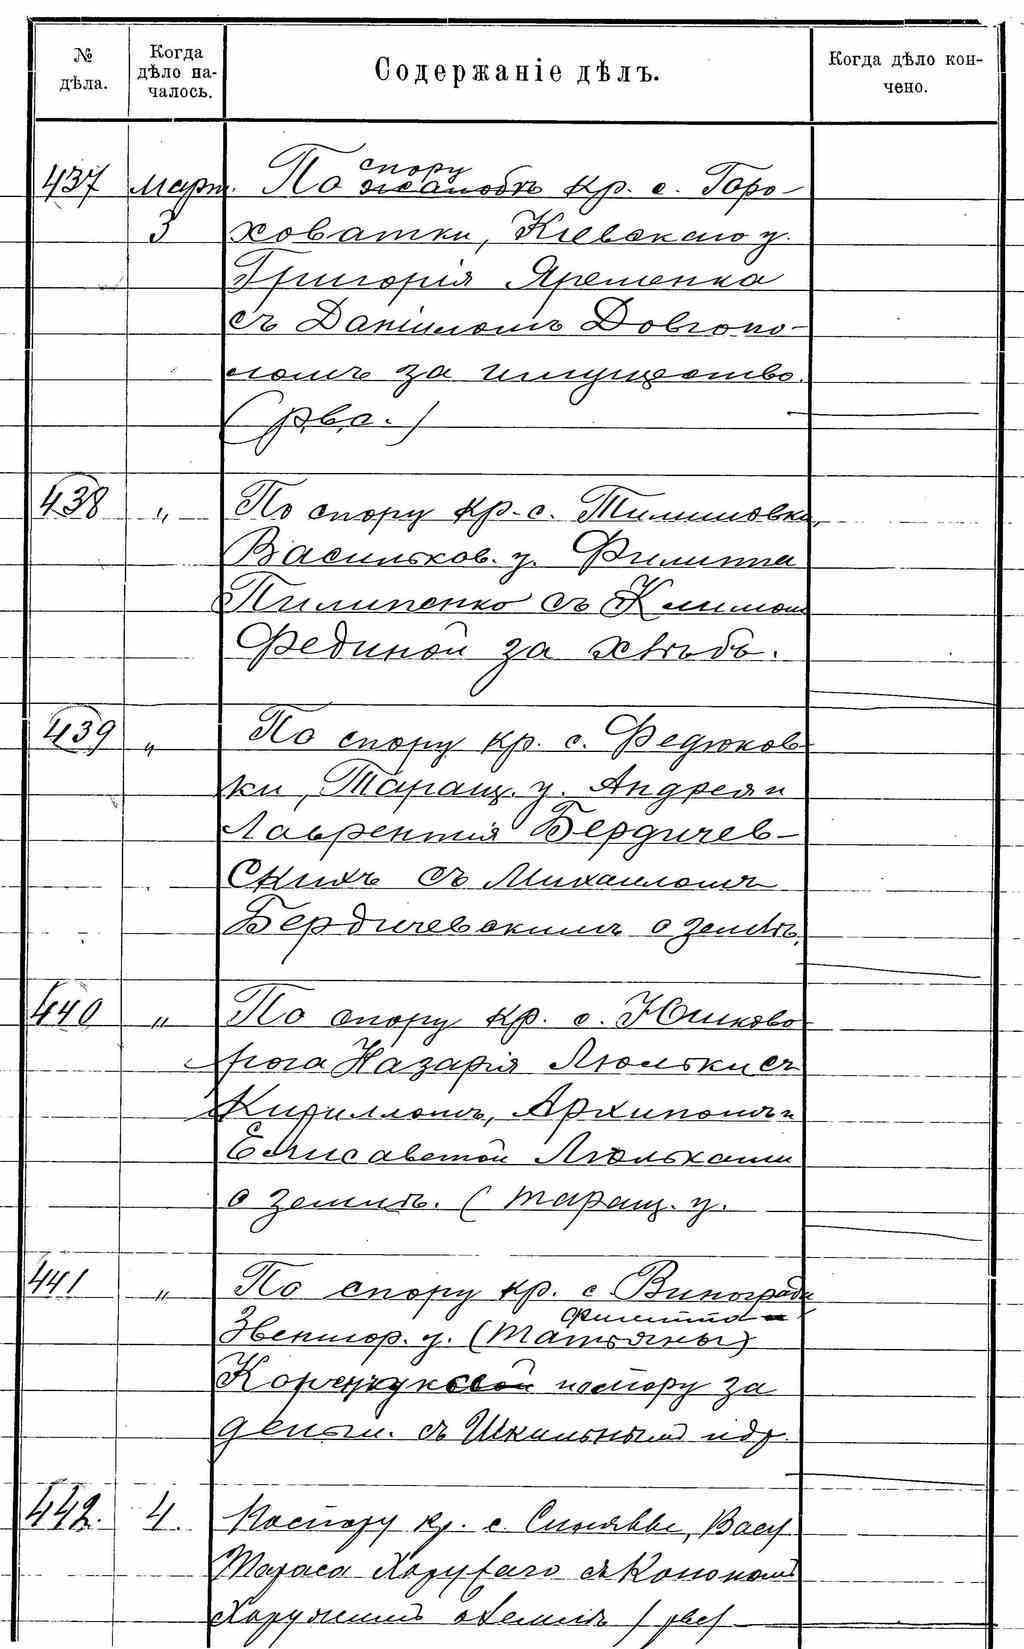 № дѣла.
Когда дѣло началось.
Содержаніе дѣлъ.
Когда дѣло кончено.
437 Март. По спору жалобѣ кр. с. Горо-
3 ховатки, Кіевскаго у.
Григорія Яременка
съ Даніиломъ Довгопо-
ломъ за имущество.
(рвс.)
438 " По спору кр. с. Тилимовки,
Васильков. у. Филиппа
Пилипенко съ Климом
Фединой за хлѣбъ.
439 " По спору кр. с. Федюков-
ки, Таращ. у. Андрея и
Лаврентія Бердичев-
скихъ съ Михаиломъ
Бердичевскимъ о землѣ.
440 " По спору кр. с. Юшково
рога Назарія Люльки съ
Кирилломъ, Архипомъ и
Елисаветой Люльками
о землѣ. (Таращ. у.
441 " По спору кр. с. Винограда
Филиппа
Звенигор. у. (Татьяны)
по спору за
деньги. съ Шкильнымъ и др.
442. 4. По спору кр. с. Синявы, Вас.
Тараса съ Конономъ
Хоружимъ о землѣ (рвс)